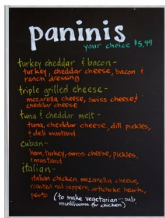 paninis
your choice $5.99
turkey cheddar & bacon -
turkey, cheddar cheese, bacon &
ranch dressing
triple grilled cheese -
mozzarella cheese, swiss cheese &
cheddar cheese
tuna & cheddar melt -
tuna, cheddar cheese, dill pickles,
& deli mustard
cuban -
ham, turkey, swiss cheese, pickles,
& mustard
italian -
italian chicken, mozzarella cheese,
roasted red peppers, artichoke hearts,
pesto
(to make vegetarian - sub
mushrooms for chicken)